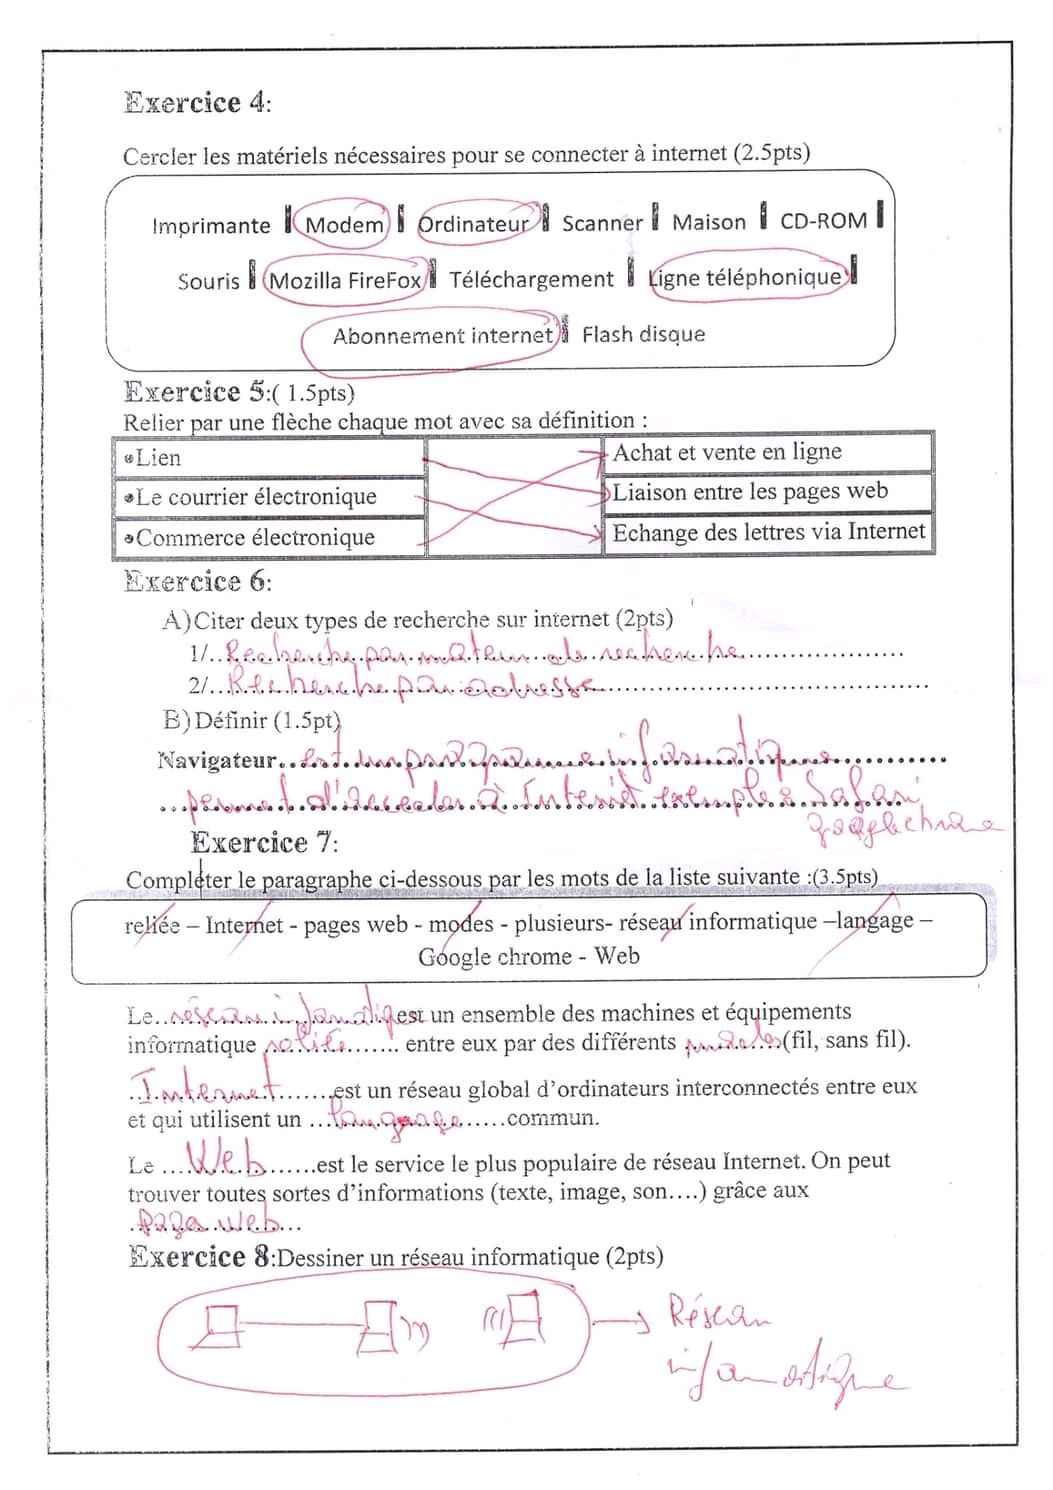 Exercice 4:
Cercler les matériels nécessaires pour se connecter à internet (2.5pts)
Imprimante Modem Ordinateur Scanner Maison CD-ROM
Souris Mozilla FireFox Téléchargement Ligne téléphonique
Abonnement internet Flash disque
Exercice 5:( 1.5pts)
Relier par une flèche chaque mot avec sa définition :
Lien Achat et vente en ligne
Le courrier électronique Liaison entre les pages web
Commerce électronique Echange des lettres via Internet
Exercice 6:
A)Citer deux types de recherche sur internet (2pts)
1/..Recherche par moteur de recherche..................
2/..Recherche par adresse..................
B)Définir (1.5pt)
Navigateur..est un programme informatique............
permet d'accéder à Internet exemple: Safari
google chrome
Exercice 7:
Compléter le paragraphe ci-dessous par les mots de la liste suivante :(3.5pts)
reliée – Internet - pages web - modes - plusieurs- réseau informatique –langage –
Google chrome - Web
Le..réseau informatique est un ensemble des machines et équipements
informatique reliée....... entre eux par des différents modes...(fil, sans fil).
..Internet.......est un réseau global d'ordinateurs interconnectés entre eux
et qui utilisent un ...langage......commun.
Le ...Web......est le service le plus populaire de réseau Internet. On peut
trouver toutes sortes d'informations (texte, image, son....) grâce aux
.page web...
Exercice 8:Dessiner un réseau informatique (2pts)
Réseau
informatique